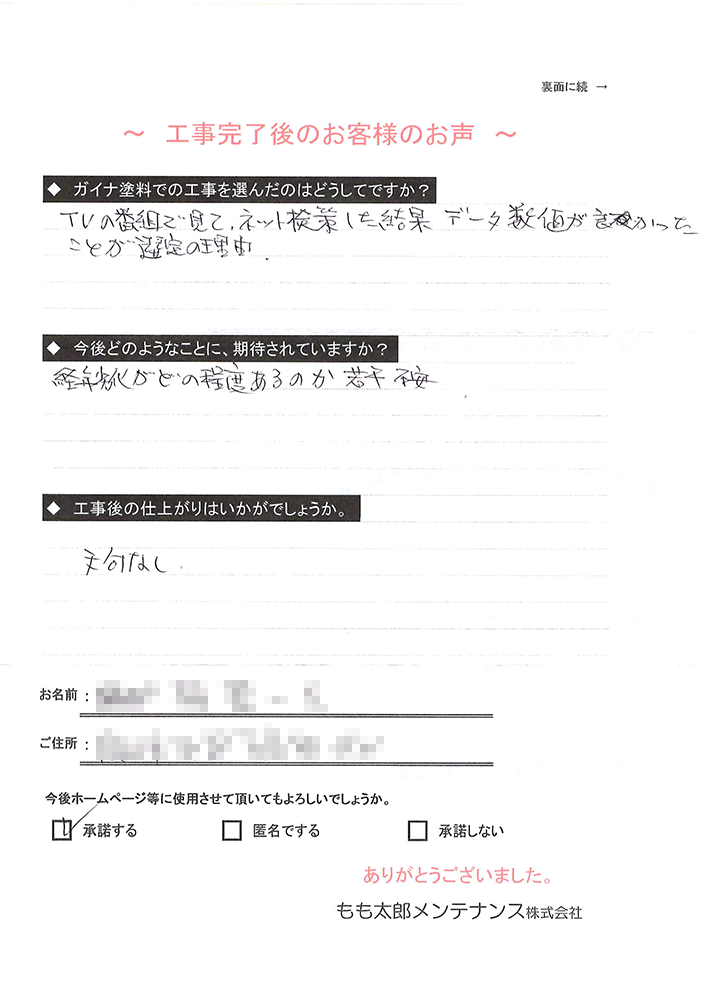 裏面に続 →
～ 工事完了後のお客様のお声 ～
◆ ガイナ塗料での工事を選んだのはどうしてですか？
TVの番組で見て、ネット検索した結果 データ数値が良かった
ことが選定の理由.
◆ 今後どのようなことに、期待されていますか？
経年劣化がどの程度あるのか 若干 不安
◆ 工事後の仕上がりはいかがでしょうか。
文句なし.
お名前：
ご住所：
今後ホームページ等に使用させて頂いてもよろしいでしょうか。
承諾する 匿名でする 承諾しない
ありがとうございました。
もも太郎メンテナンス株式会社